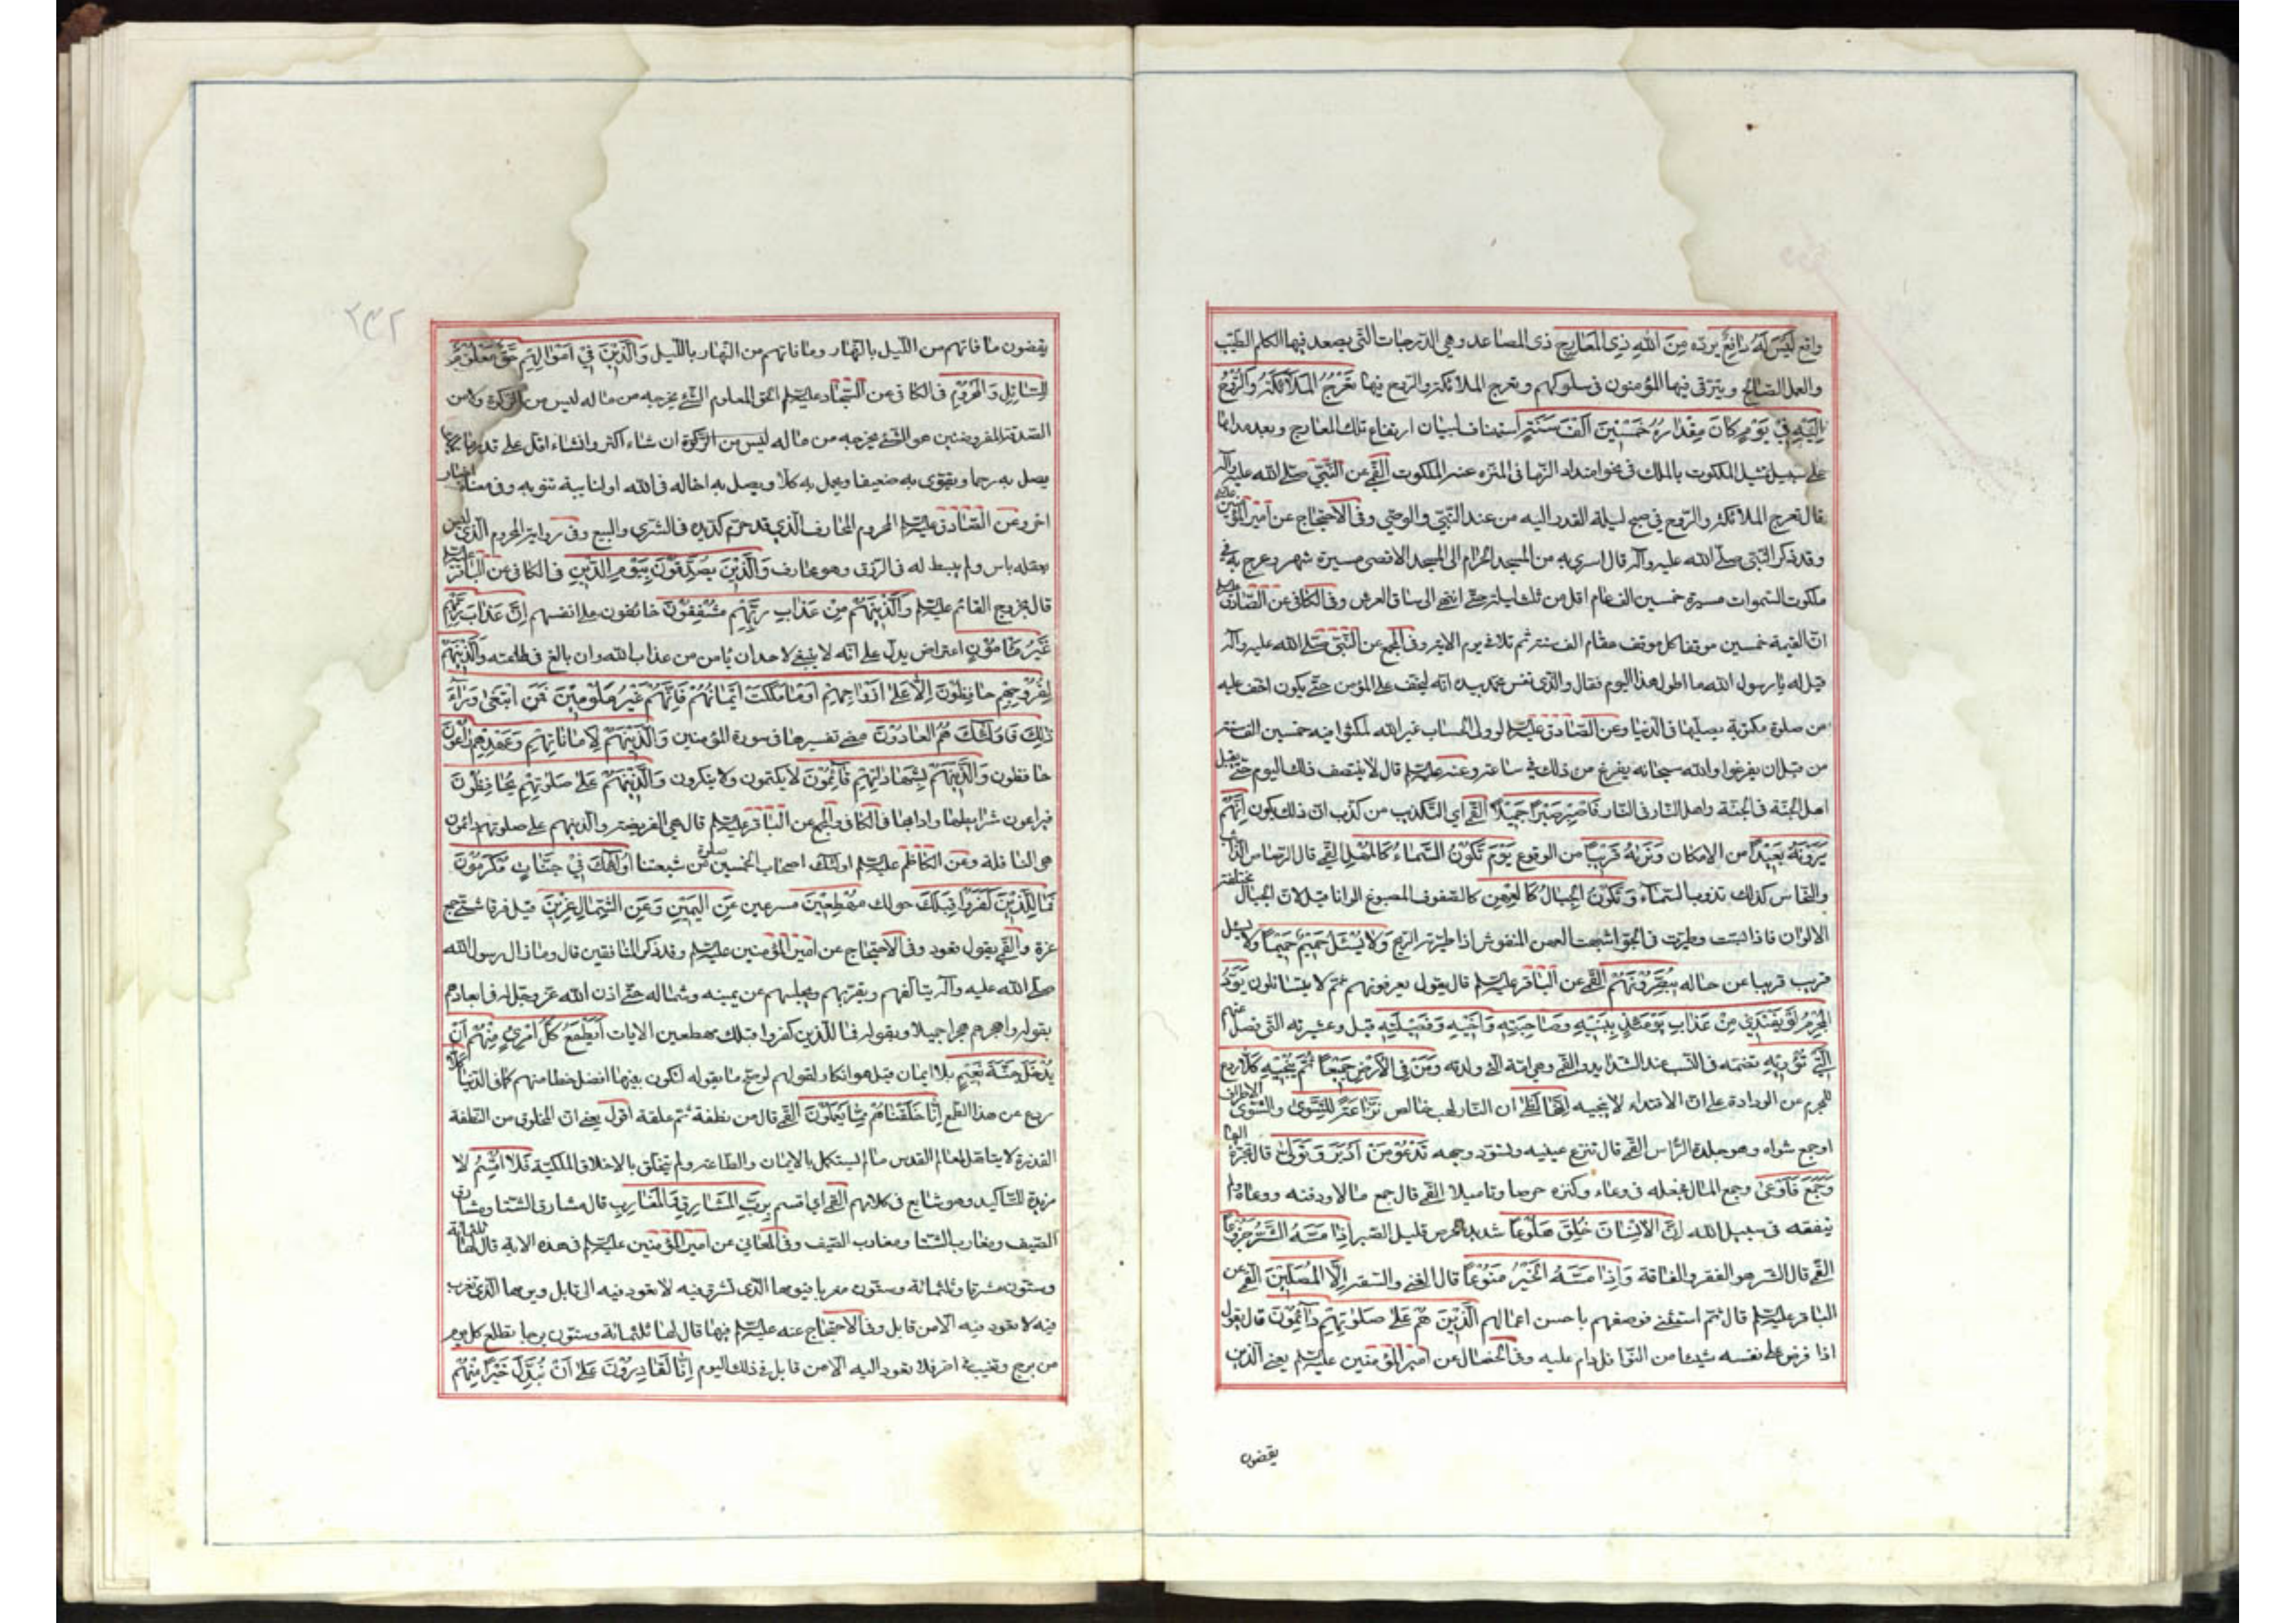 واقع لَيْسَ لَهُ دَافِعٌ يردّه مِنَ اللّهِ ذِى المَعَارِجِ ذى المصاعد وهى الدّرجات التّى يصعد فيها الكلم الطيّب
والعمل الصّالح ويترقّى فيها المؤمنون فى سلوكهم وتعرج الملائكة والرّوح فيها تَعْرُجُ المَلَائِكَةُ وَالرُّوحُ
اِلَيْهِ فِى يَوْمٍ كَانَ مِقْدَارُهُ خَمْسِينَ اَلْفَ سَنَةٍ استيناف لبيان ارتفاع تلك المعارج وبعد مداها
على سبيل تمثيل الملكوت بالملك فى نحو امتداد الزّمانى المنزّه عنه الملكوت القمّى عن النّبىّ صلّى اللّه عليه وآله
قال تعرج الملائكة والرّوح فى صبح ليلة القدر اليه من عند النّبىّ والوصىّ وفى الاحتجاج عن امير المؤمنين
وقد ذكر النّبى صلّى اللّه عليه وآله قال اسرى به من المسجد الحرام الى المسجد الاقصى مسيرة شهر وعرج به فى
ملكوت السّموات مسيرة خمسين الف عام اقلّ من ثلث ليلة حتّى انتهى الى ساق العرش وفى الكافى عن الصّادق عليه السلم
انّ القيمة خمسين موقفا كلّ موقف مقام الف سنة ثم تلا فى يوم الاية وفى المجمع عن النّبىّ صلّى اللّه عليه وآله
قيل له يا رسول اللّه ما اطول هذا اليوم فقال والّذى نفس محمّد بيده انّه ليخفّف على المؤمن حتّى يكون اخفّ عليه
من صلوة مكتوبة يصلّيها فى الدّنيا وعن الصّادق عليه السلم لو ولى الحساب غير اللّه لمكثوا فيه خمسين الف سنة
من قبل ان يفرغوا واللّه سبحانه يفرغ من ذلك فى ساعة وعنه عليه السلم قال لا ينتصف ذلك اليوم حتّى يقبل
اهل الجنّة فى الجنّة واهل النّار فى النّار فَاصْبِرْ صَبْرًا جَمِيلًا القمّى اى لتكذيب من كذّب انّ ذلك يكون اِنَّهُمْ
يَرَوْنَهُ بَعِيدًا من الامكان وَنَرٰيهُ قَرِيبًا من الوقوع يَوْمَ تَكُونُ السَّمَاءُ كَالمُهْلِ القمّى قال الرّصاص الذّائب
والنّحاس كذلك تذوب السّماء وَتَكُونُ الجِبَالُ كَالعِهْنِ كالصّوف المصبوغ الوانا قيل لانّ الجبال مختلفة
الالوان فاذا بسّت وطيّرت فى الجوّ اشبهت العهن المنفوش اذا طيّرته الرّيح وَلَا يَسْئَلُ حَمِيمٌ حَمِيمًا ولا يسئل
قريب قريبا عن حاله يُبَصَّرُونَهُمْ القمّى عن الباقر عليه السلم قال يقول يعرفونهم ثم لا يتسائلون يَوَدُّ
المُجْرِمُ لَوْ يَفْتَدِى مِنْ عَذَابِ يَوْمَئِذٍ بِبَنِيهِ وَصَاحِبَتِهِ وَاَخِيهِ وَفَصِيلَتِهِ قيل وعشيرته الّتى فصل عنهم
الَّتِى تُؤْوِيهِ تضمّه فى النّسب عند الشّدايد والقمّى وهى امّه الّتى ولدته وَمَنْ فِى الْاَرْضِ جَمِيعًا ثُمَّ يُنْجِيهِ كَلَّا ردع
للمجرم عن الودادة على انّ الافتداء لا ينجيه اِنَّهَا لَظٰى انّ النّار لهب خالص نَزَّاعَةً لِلشَّوٰى والشّوى الاطراف
او جمع شواه وهو جلدة الرّاس القمّى قال تنزع عينيه وتسودّ وجهه تَدْعُو مَنْ اَدْبَرَ وَتَوَلّٰى قال تجرّه اليها
وَجَمَعَ فَاَوْعٰى وجمع المال فجعله فى وعاء وكنزه حرصا وتاميلا القمّى قال جمع مالا ودفنه ووعاه ولم
ينفقه فى سبيل اللّه اِنَّ الْاِنْسَانَ خُلِقَ هَلُوعًا شديد الحرص قليل الصّبر اِذَا مَسَّهُ الشَّرُّ جَزُوعًا
القمّى قال الشّر هو الفقر والفاقة وَاِذَا مَسَّهُ الخَيْرُ مَنُوعًا قال الغنى والسّعة اِلَّا المُصَلِّينَ القمّى عن
الباقر عليه السلم قال ثمّ استثنى فوصفهم باحسن اعمالهم الَّذِينَ هُمْ عَلٰى صَلٰوتِهِمْ دَائِمُونَ قال يقول
اذا فرض على نفسه شيئا من النّوافل دام عليه وفى الخصال عن امير المؤمنين عليه السلم يعنى الّذين
يقضون
٢٣٢
يقضون ما فاتهم من اللّيل بالنّهار وما فاتهم من النّهار باللّيل وَالَّذِينَ فِى اَمْوَالِهِمْ حَقٌّ مَعْلُومٌ
لِلسَّائِلِ وَالمَحْرُومِ فى الكافى عن السّجّاد عليه السلم الحقّ المعلوم الشّىء يخرجه من ماله ليس من الزّكوة ولا من
الصّدقة المفروضتين هو الشّىء يخرجه من ماله ليس من الزّكوة ان شاء اكثر وان شاء اقلّ على قدر ما يملك
يصل به رحما ويقوّى به ضعيفا ويحمل به كلّا ويصل به اخا له فى اللّه او لنائبة تنوبه وفى معناه اخبار
اخر وعن الصّادق عليه السلم المحروم المحارف الّذى قد حرم كدّ يده فى الشّرى والبيع وفى رواية المحروم الّذى ليس
بعقله باس ولم يبسط له فى الرّزق وهو محارف وَالَّذِينَ يُصَدِّقُونَ بِيَوْمِ الدِّينِ فى الكافى عن الباقر عليه السلم
قال بخروج القائم عليه السلم وَالَّذِينَ هُمْ مِنْ عَذَابِ رَبِّهِمْ مُشْفِقُونَ خائفون على انفسهم اِنَّ عَذَابَ رَبِّهِمْ
غَيْرُ مَامُونٍ اعتراض يدلّ على انّه لا ينبغى لاحد ان يامن من عذاب اللّه وان بالغ فى طاعته وَالَّذِينَ هُمْ
لِفُرُوجِهِمْ حَافِظُونَ اِلَّا عَلٰى اَزْوَاجِهِمْ اَوْ مَا مَلَكَتْ اَيْمَانُهُمْ فَاِنَّهُمْ غَيْرُ مَلُومِينَ فَمَنِ ابْتَغٰى وَرَآءَ
ذٰلِكَ فَاُولٰئِكَ هُمُ العَادُونَ مضى تفسيرها فى سورة المؤمنين وَالَّذِينَ هُمْ لِاَمَانَاتِهِمْ وَعَهْدِهِمْ رَاعُونَ
حافظون وَالَّذِينَ هُمْ بِشَهَادَاتِهِمْ قَائِمُونَ لا يكتمون ولا ينكرون وَالَّذِينَ هُمْ عَلٰى صَلٰوتِهِمْ يُحَافِظُونَ
فيراعون شرايطها وادابها فى الكافى والمجمع عن الباقر عليه السلم قال هى الفريضة والّذين هم على صلوتهم دائمون
هى النّافلة وعن الكاظم عليه السلم اولئك اصحاب الخمسين صلوة من شيعتنا اُولٰئِكَ فِى جَنَّاتٍ مُكْرَمُونَ
فَمَالِ الَّذِينَ كَفَرُوا قِبَلَكَ حولك مُهْطِعِينَ مسرعين عَنِ اليَمِينِ وَعَنِ الشِّمَالِ عِزِينَ قيل فرقا شتّى جمع
عزة والقمّى يقول قعود وفى الاحتجاج عن امير المؤمنين عليه السلم وقد ذكر المنافقين قال وما زال رسول اللّه
صلّى اللّه عليه وآله يتالّفهم ويقرّبهم ويجلسهم عن يمينه وشماله حتّى اذن اللّه عزّ وجلّ له فى ابعادهم
بقوله واهجرهم هجرا جميلا وبقوله فما للّذين كفروا قبلك مهطعين الايات اَيَطْمَعُ كُلُّ امْرِئٍ مِنْهُمْ اَنْ
يُدْخَلَ جَنَّةَ نَعِيمٍ بلا ايمان قيل هو انكار لقولهم لو صحّ ما يقوله لنكون فيها افضل حظّا منهم كما فى الدّنيا كَلَّا
ردع عن هذا الطّمع اِنَّا خَلَقْنَاهُمْ مِمَّا يَعْلَمُونَ القمّى قال من نطفة ثم علقة اقول يعنى انّ المخلوق من النّطفة
القذرة لا يتاهّل لعالم القدس ما لم يستكمل بالايمان والطّاعة ولم يتخلّق بالاخلاق الملكيّة فَلَا اُقْسِمُ لا
مزيدة للتّاكيد وهو شايع فى كلامهم القمّى اى اقسم بِرَبِّ المَشَارِقِ وَالمَغَارِبِ قال مشارق الشّتا ومشارق
الصّيف ومغارب الشّتا ومغارب الصّيف وفى المعانى عن امير المؤمنين عليه السلم فى هذه الاية قال لها ثلثمائة
وستّون مشرقا وثلثمائة وستّون مغربا فيومها الّذى تشرق فيه لا تعود فيه الى قابل ويومها الّذى تغرب
فيه لا تعود فيه الّا من قابل وفى الاحتجاج عنه عليه السلم فيها قال لها ثلثمائة وستّون برجا تطلع كلّ يوم
من برج وتغيب فى اخر فلا تعود اليه الّا من قابل فى ذلك اليوم اِنَّا لَقَادِرُونَ عَلٰى اَنْ نُبَدِّلَ خَيْرًا مِنْهُمْ